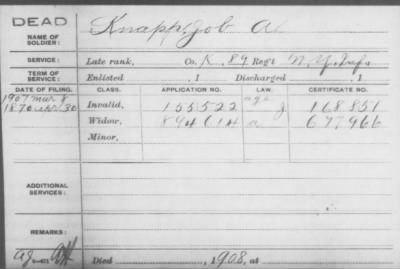 DEAD
NAME OF SOLDIER: Knapp, Job
SERVICE: Late rank, Co. K, 89 Regt N.Y. Inf.
TERM OF SERVICE: Enlisted , 1 Discharged , 1
DATE OF FILING. CLASS. APPLICATION NO. LAW. CERTIFICATE NO.
1907 Mar 8
1870 30 Invalid, 155522 168851
Widow, 894614 a 677966
Minor,
ADDITIONAL SERVICES:
REMARKS:
Died , 1908, at